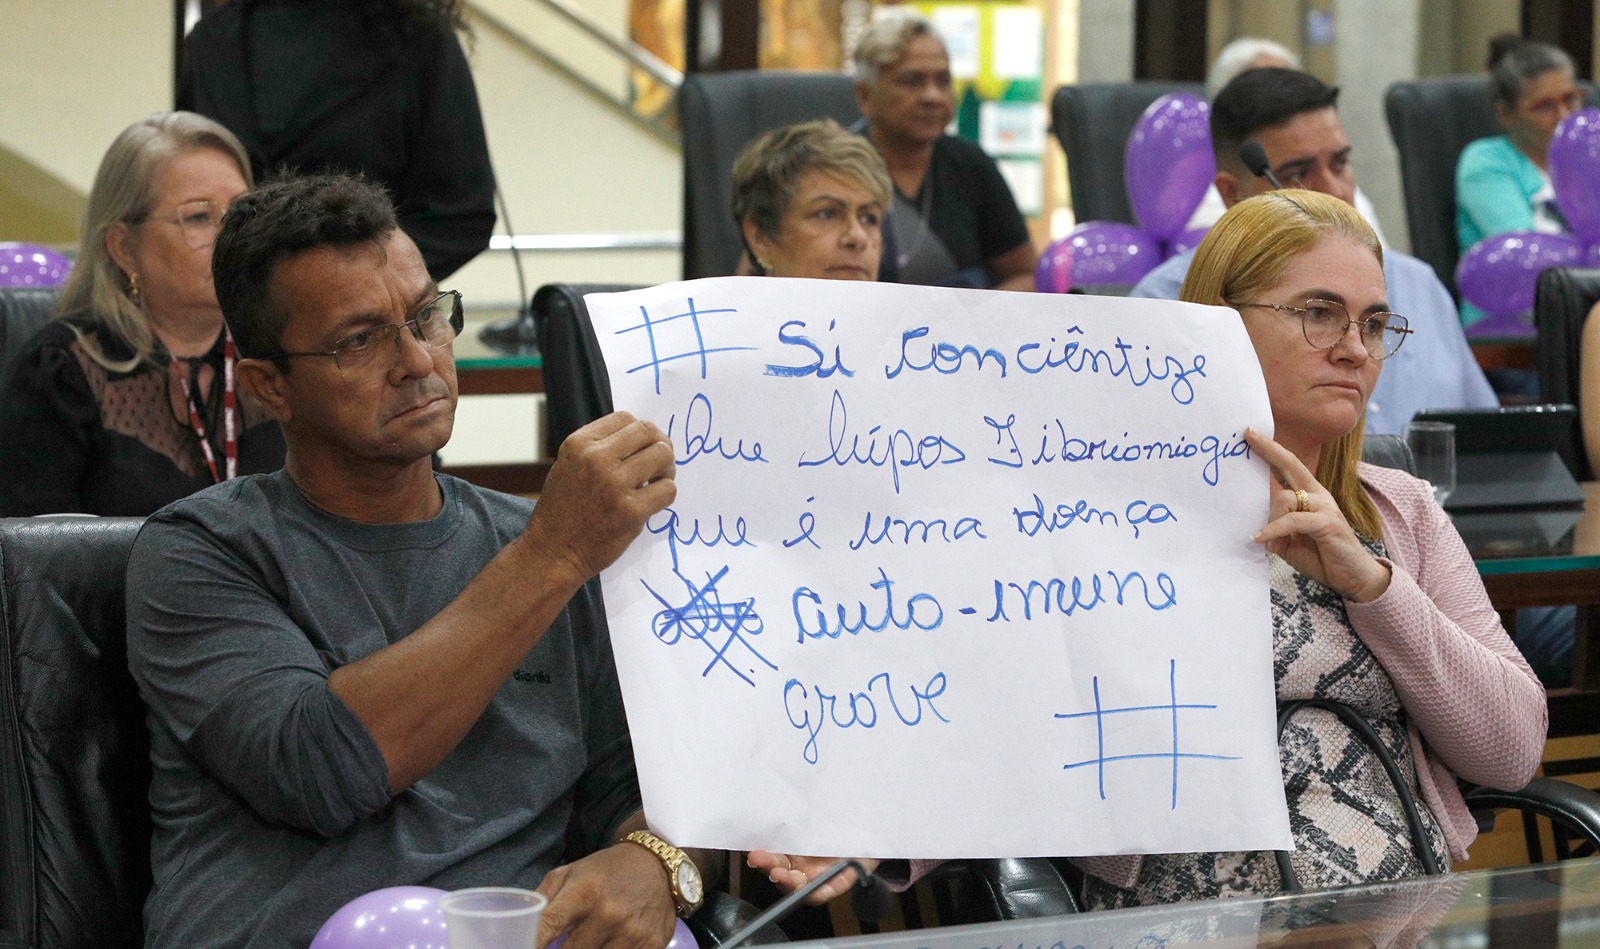 # Si conciêntize
Que lúpos Fibriomiogia
que é uma doença
auto-imune
grave
#